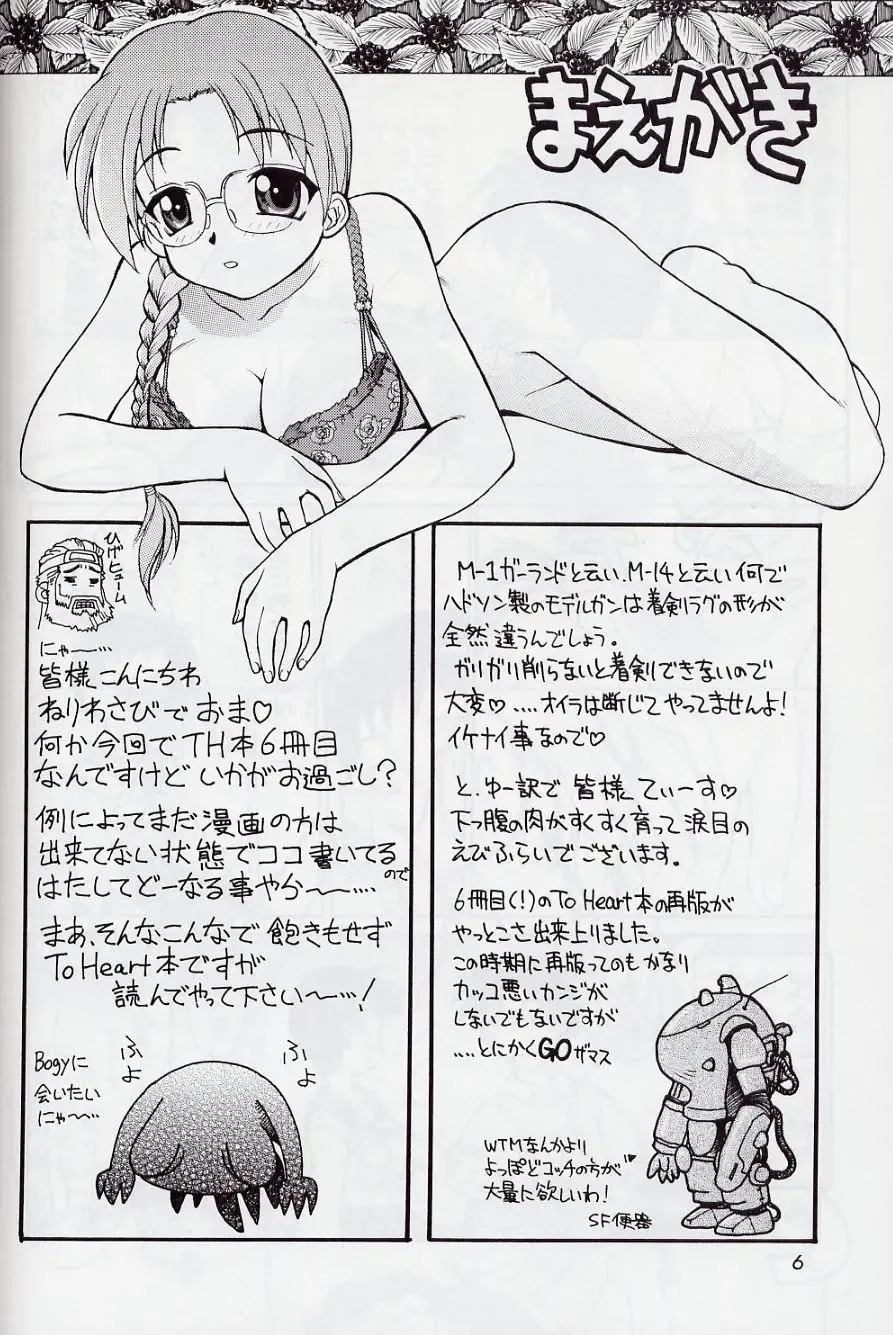 まえがき
ひげヒューム
にゃ〜…
皆様こんにちわ
ねりわさびでおま♡
何か今回でTH本6冊目
なんですけどいかがお過ごし?
例によってまだ漫画の方は
出来てない状態でココ書いてるので
はたしてどーなる事やら〜…
まあ、そんなこんなで飽きもせず
To Heart本ですが
読んでやって下さい〜…!
Bogyに
会いたい
にゃ〜…
ふよ
ふよ
M-1ガーランドと云い、M-14と云い何で
ハドソン製のモデルガンは着剣ラグの形が
全然違うんでしょう。
ガリガリ削らないと着剣できないので
大変♡‥‥オイラは断じてやってませんよ!
イケナイ事なので♡
と、ゆー訳で皆様てぃーす♡
下っ腹の肉がすくすく育って涙目の
えびふらいでございます。
6冊目(!)のTo Heart本の再版が
やっとこさ出来上りました。
この時期に再版ってのもかなり
カッコ悪いカンジが
しないでもないですが
‥‥とにかくGOザマス
WTMなんかより
よっぽどコッチの方が♥
大量に欲しいわ!
SF便器
6